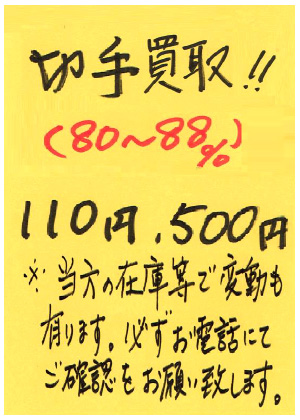 切手買取!!
(80~88%)
110円.500円
※当方の在庫等で変動も
有ります。必ずお電話にて
ご確認をお願い致します。